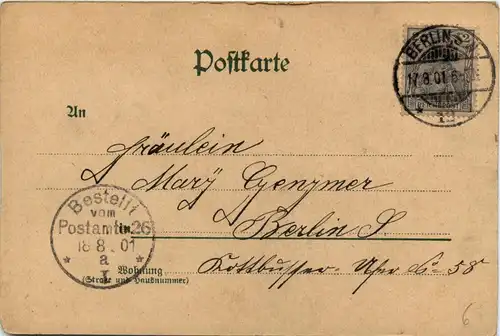 Postkarte
BERLIN S2
17.8.01 6-
An
Fräulein
Mary Genzmer
in Berlin S
Kottbusser-Ufer 58
Bestellt
vom
Postamte 26
18 8 01
* a *
I
Wohnung
(Straße und Hausnummer)
6